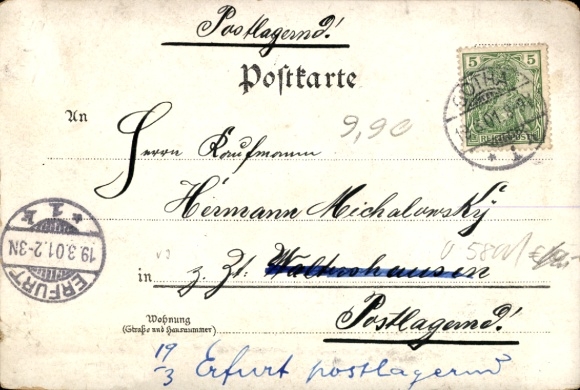 Postlagernd!
Postkarte
5
GOTHA
An
9,90
Herrn Kaufmann
Hermann Michalowsky
in z. Zt. Waltershausen
Postlagernd!
ERFURT
19.3.01.2-3N
* 1 k
Wohnung
(Straße und Hausnummer)
19/3 Erfurt postlagernd